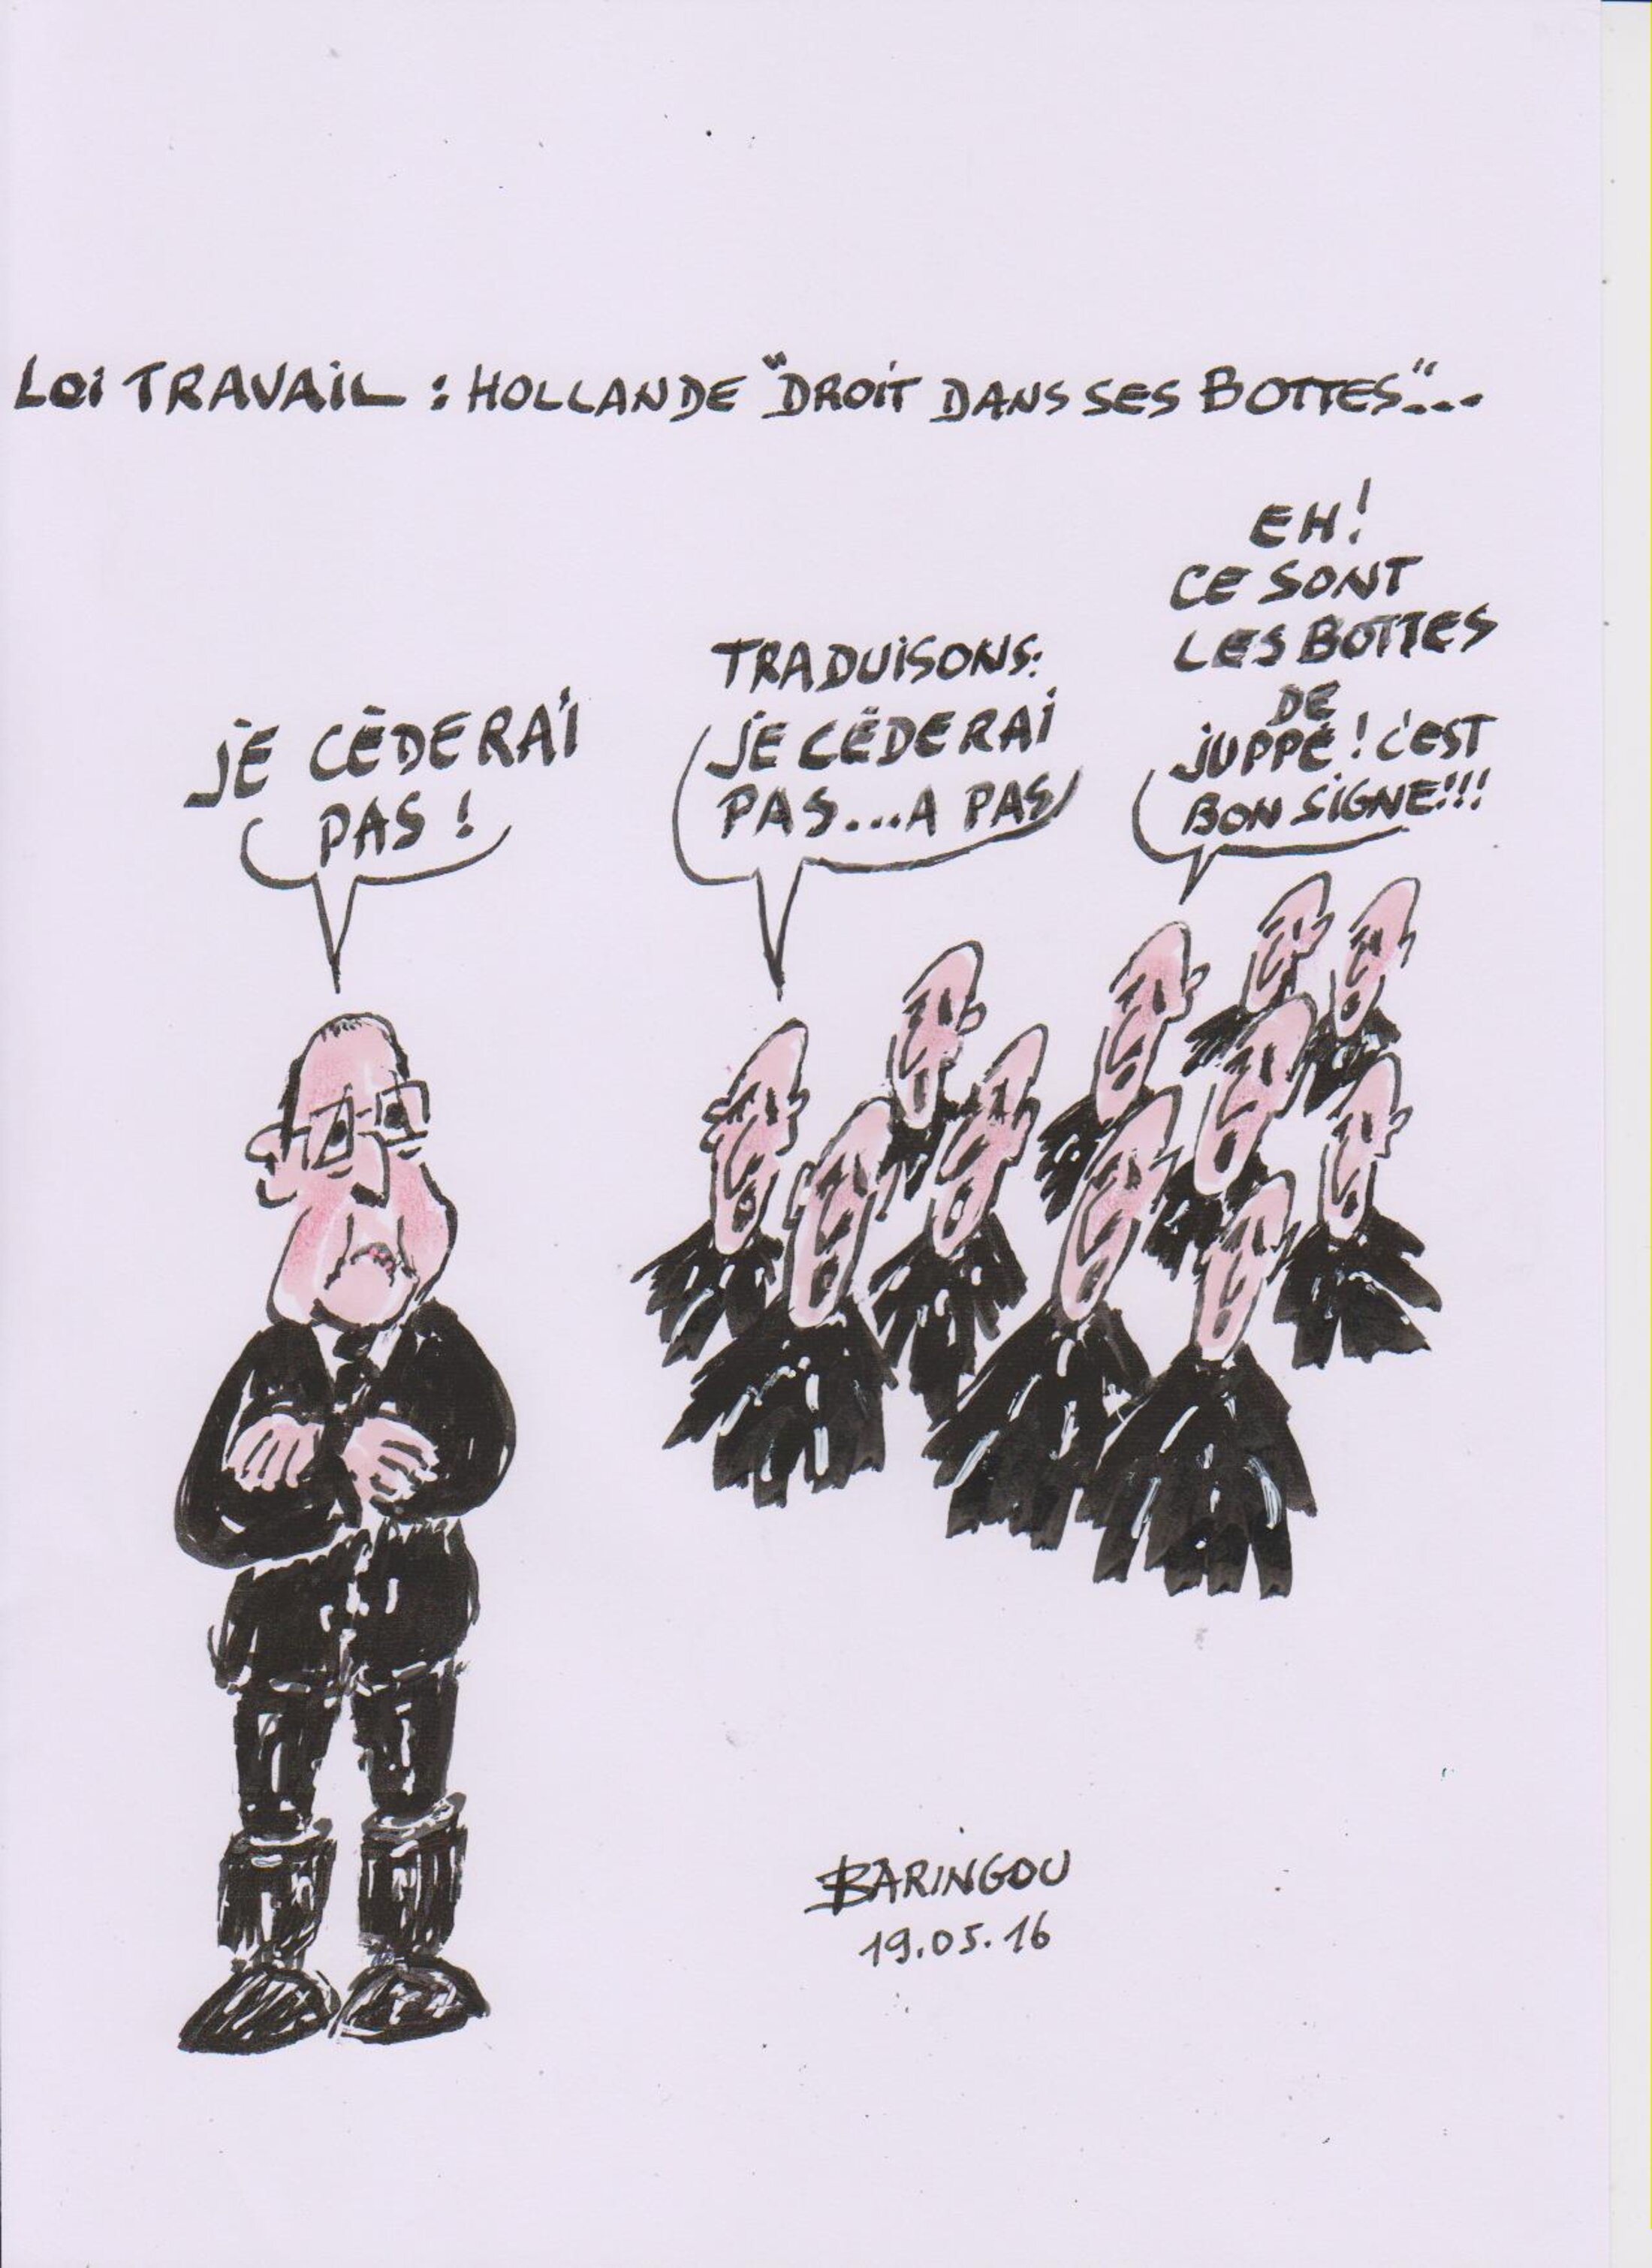 LOI TRAVAIL : HOLLANDE "DROIT DANS SES BOTTES"...
JE CÈDERAI
PAS !
TRADUISONS:
JE CÈDERAI
PAS...A PAS
EH!
CE SONT
LES BOTTES
DE
JUPPÉ ! C'EST
BON SIGNE!!!
BARINGOU
19.05.16